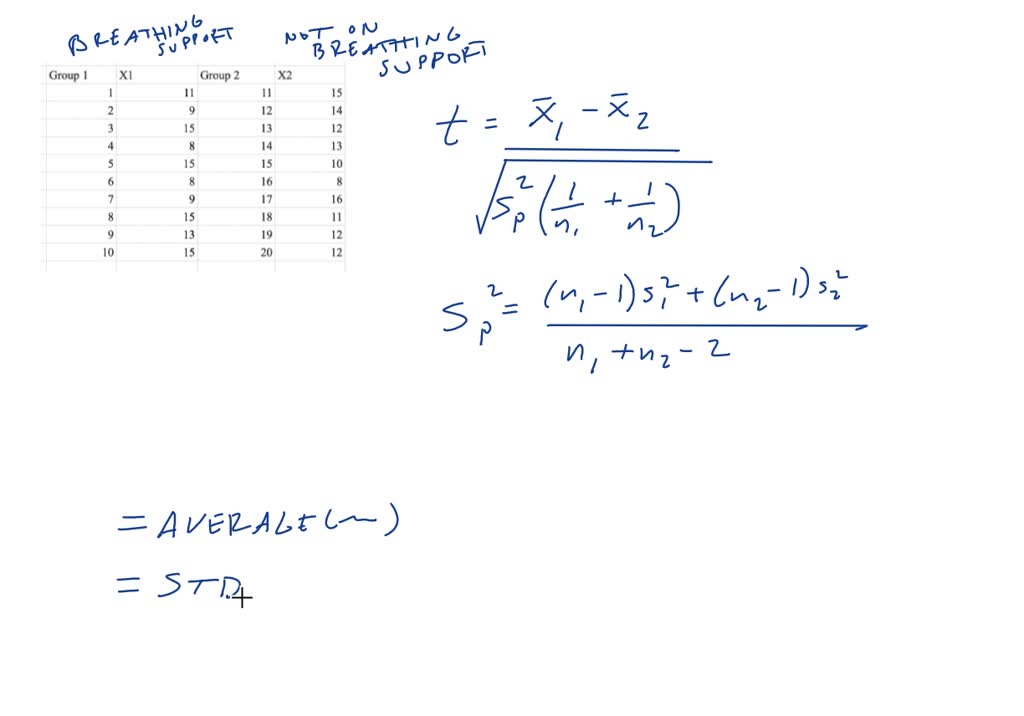 BREATHING SUPPORT
NOT ON BREATHING SUPPORT
Group 1 X1 Group 2 X2
1 11 11 15
2 9 12 14
3 15 13 12
4 8 14 13
5 15 15 10
6 8 16 8
7 9 17 16
8 15 18 11
9 13 19 12
10 15 20 12
t = x̄₁ - x̄₂
√sₚ²(1/n₁ + 1/n₂)
Sₚ² = (n₁-1)s₁² + (n₂-1)s₂²
n₁ + n₂ - 2
= AVERAGE(~)
= STD